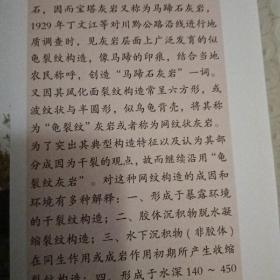 石，因而宝塔灰岩又称为马蹄石灰岩，
1929年丁文江等对川黔公路沿线进行地
质调查时，见灰岩层面上广泛发育的似
龟裂纹构造，像马蹄的印痕，结合当地
农民称呼，创造“马蹄石灰岩”一词。
又因其风化面裂纹构造常呈六方形，或
波纹状与半圆形，似乌龟背壳，将其称
为“龟裂纹”灰岩或者称为网纹状灰岩。
为了突出其典型构造特征以及认为其部
分成因为干裂的观点，故而继续沿用“龟
裂纹灰岩”。对这种网纹构造的成因和
环境有多种解释：一、形成于暴露环境
的干裂纹构造；二、胶体沉积物脱水凝
缩裂纹构造；三、水下沉积物（非胶体）
在同生作用或成岩作用初期所产生收缩
裂纹构造；四、形成于水深140～450